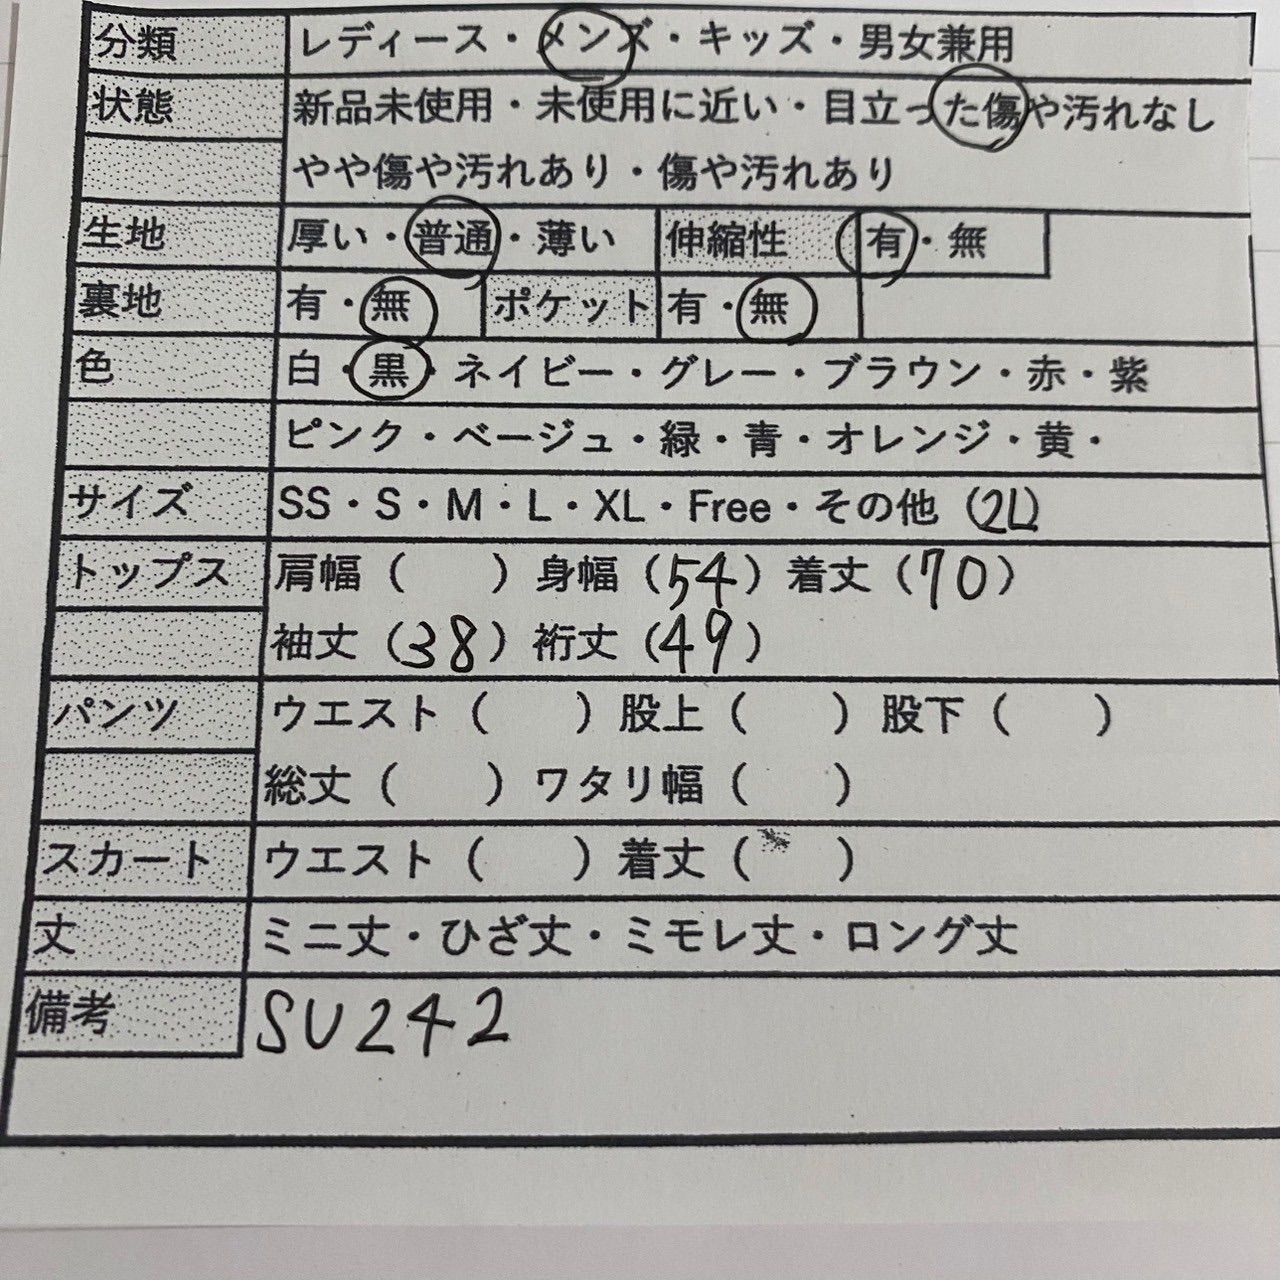 分類 レディース・メンズ・キッズ・男女兼用
状態 新品未使用・未使用に近い・目立った傷や汚れなし
やや傷や汚れあり・傷や汚れあり
生地 厚い・普通・薄い 伸縮性 有・無
裏地 有・無 ポケット 有・無
色 白・黒・ネイビー・グレー・ブラウン・赤・紫
ピンク・ベージュ・緑・青・オレンジ・黄・
サイズ SS・S・M・L・XL・Free・その他（2L）
トップス 肩幅（　　）身幅（54）着丈（70）
袖丈（38）裄丈（49）
パンツ ウエスト（　　）股上（　　）股下（　　）
総丈（　　）ワタリ幅（　　）
スカート ウエスト（　　）着丈（　　）
丈 ミニ丈・ひざ丈・ミモレ丈・ロング丈
備考 SU242